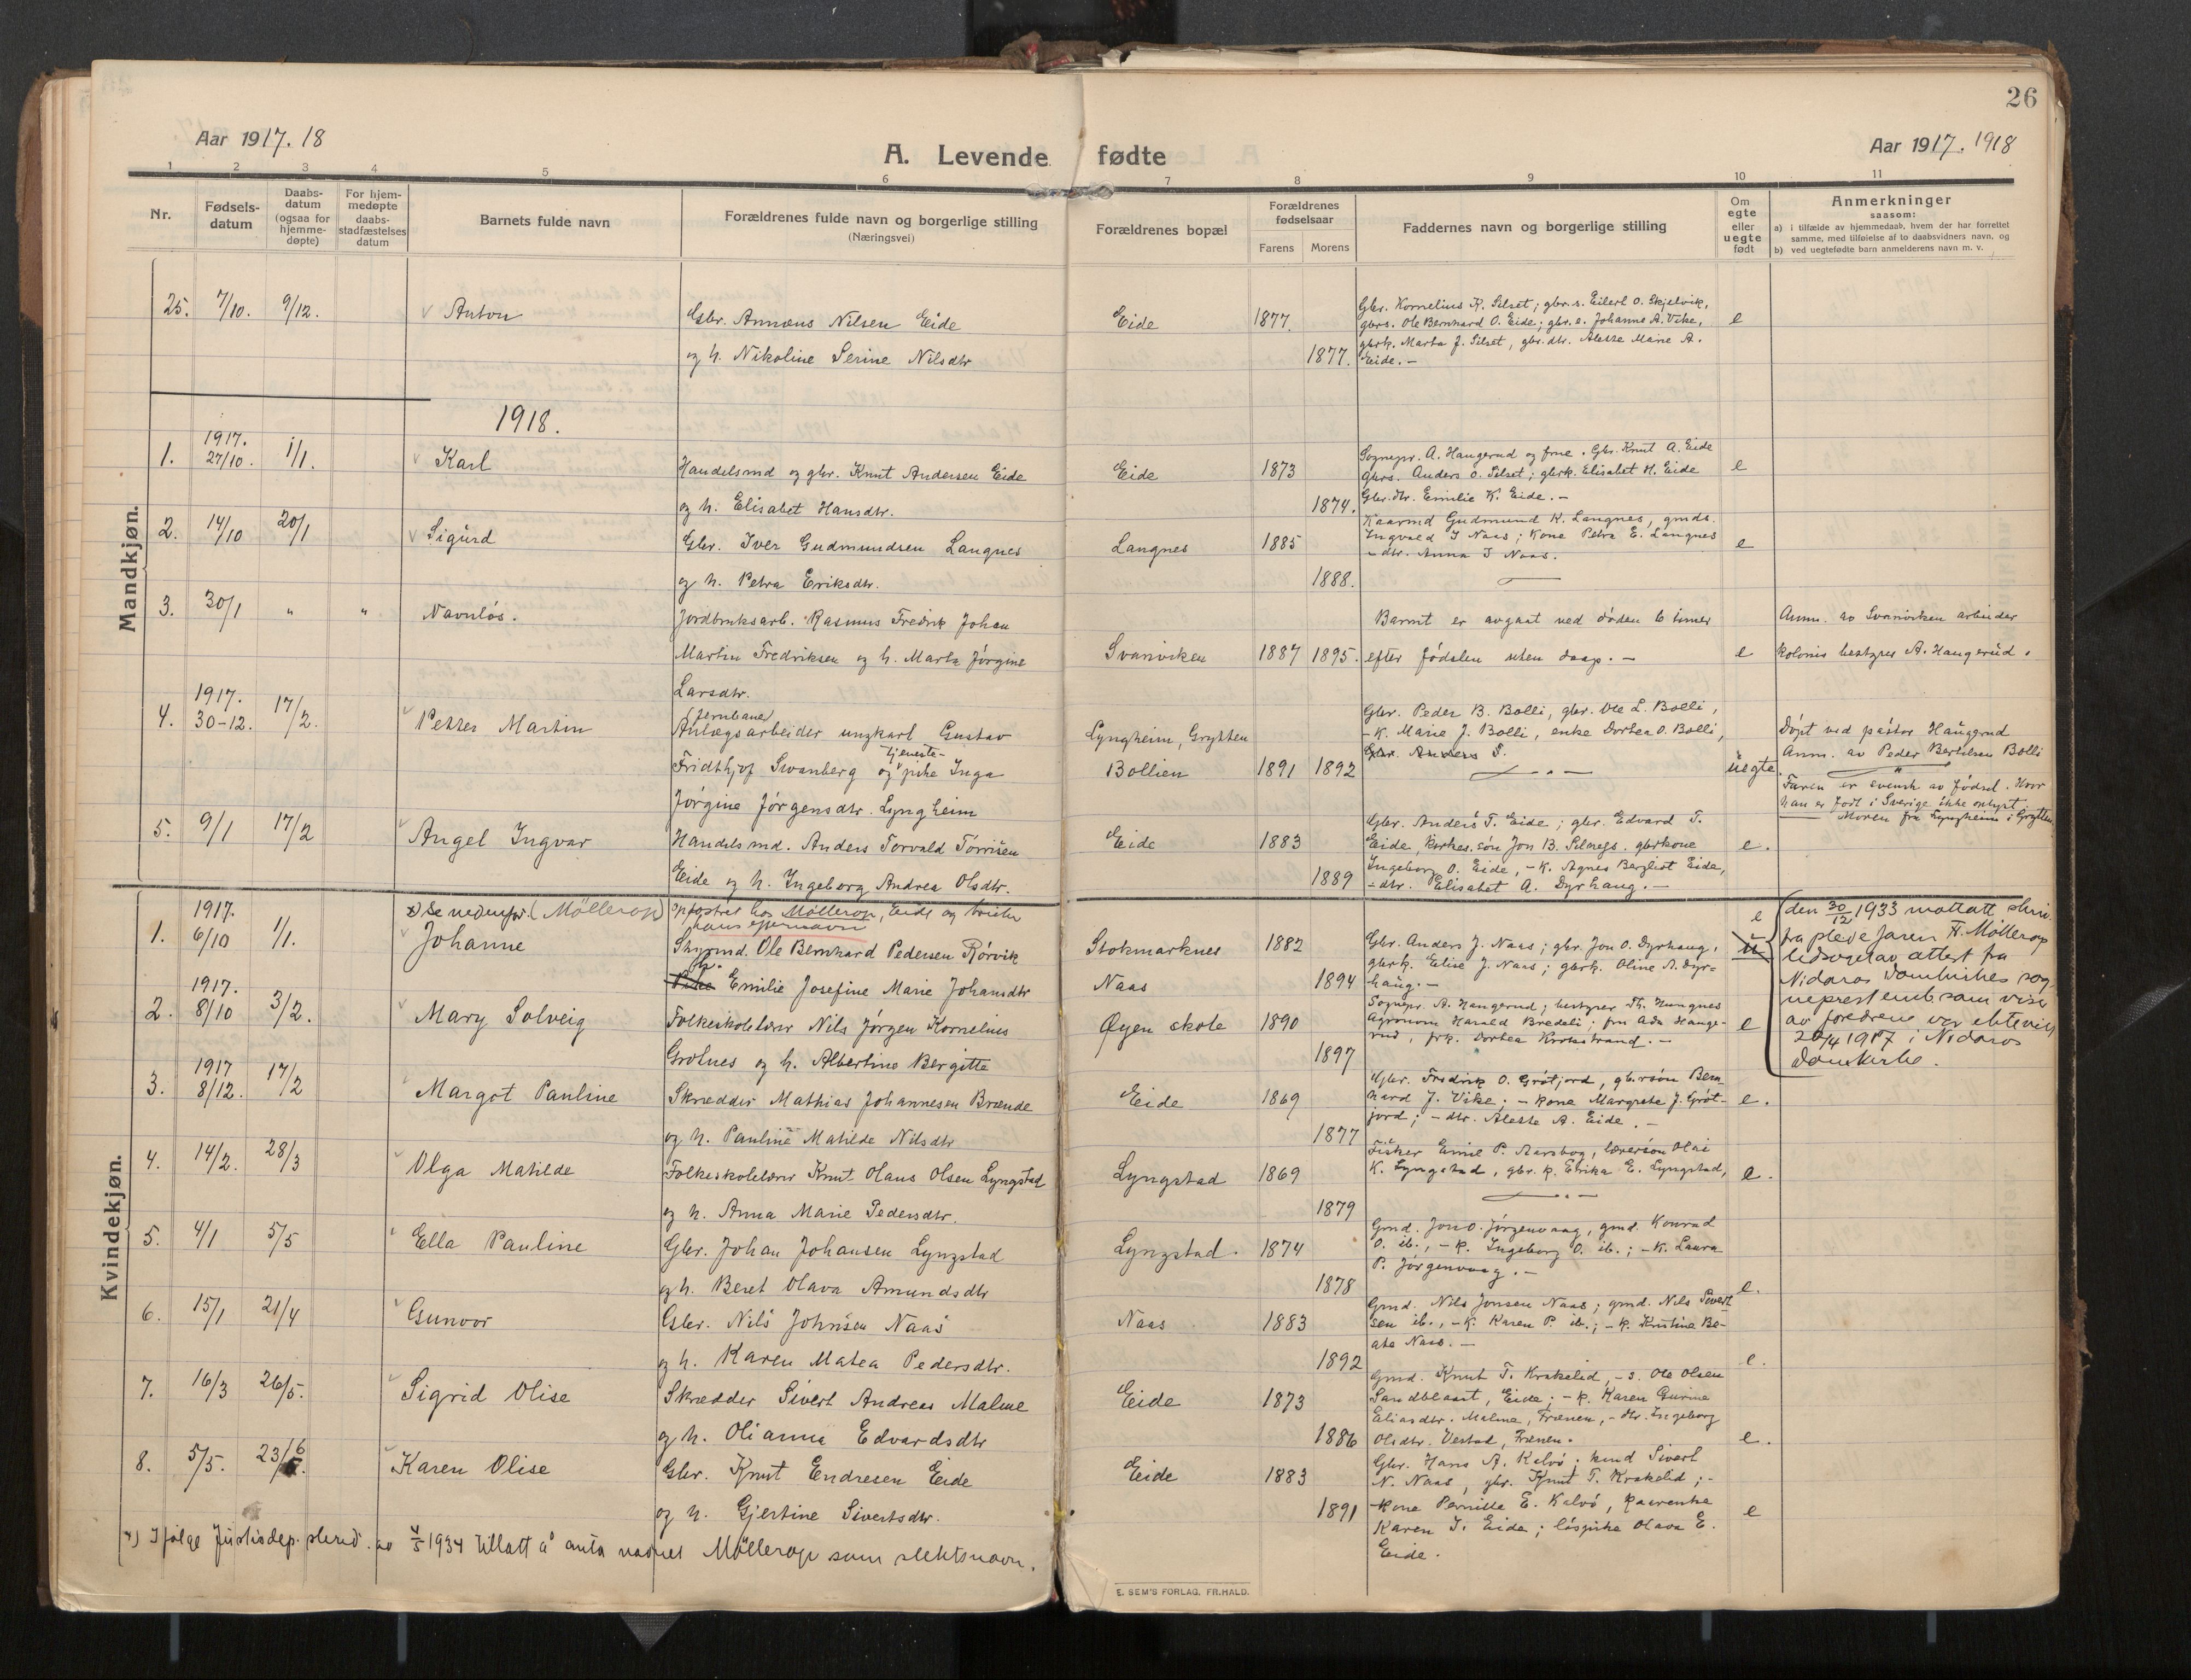 26
Aar 1917. 18
A. Levende fødte
Aar 1917. 1918
1 2 3 4 5 6 7 8 9 10 11
Nr.
Fødsels-
datum
Daabs-
datum
(ogsaa for
hjemme-
døpte)
For hjem-
medøpte
daabs-
stadfæstelses
datum
Barnets fulde navn
Forældrenes fulde navn og borgerlige stilling
(Næringsvei)
Forældrenes bopæl
Forældrenes
fødselsaar
Farens Morens
Faddernes navn og borgerlige stilling
Om
egte
eller
uegte
født
Anmerkninger
saasom:
a) i tilfælde av hjemmedaab, hvem der har forrettet
samme, med tilføielse af to daabsvidners navn, og
b) ved uegtefødte barn anmelderens navn m. v.
Mandkjøn.
25. 7/10. 9/12. Anton
Gbr. Annæus Nilsen Eide
og h. Nikoline Serine Nilsdtr
Eide 1877. 1877.
Gbr. Kornelius K. Silset; gbr.s. Eilert O. Skjelvik,
gbrs. Ole Bernhard O. Eide; gbr.e. Johanne A. Vike,
gbrk. Marta J. Silset, gbr.dtr. Alette Marie A.
Eide. –
e
1918.
1. 1917. 27/10. 1/1. Karl
Handelsmd og gbr. Knut Andersen Eide
og h. Elisabet Hansdtr.
Eide 1873 1874.
Sognepr. A. Haugerud og frue. Gbr. Knut A. Eide
gbrs. Anders O. Silset; gbrk. Elisabet H. Eide
Gbr.dtr. Emilie K. Eide. –
e
2. 14/10 20/1 Sigurd
Gbr. Iver Gudmundsen Langnes
og h. Petra Eriksdtr.
Langnes 1885 1888.
Kaarmd Gudmund K. Langnes, gmds.
Ingvald J Naas; kone Petra E. Langnes
– dtr. Anna J Naas.
e
3. 30/1 " " Navnløs.
Jordbruksarb. Rasmus Fredrik Johan
Martin Fredriksen og h. Marta Jørgine
Larsdtr.
Svanviken 1887 1895.
Barnet er avgaat ved døden 6 timer
efter fødslen uten daap. –
e
Anm. av Svanviken arbeider
kolonis bestyrer A. Haugerud.
4. 1917. 30-12. 17/2. Petter Martin
(jernbane)
Anlægsarbeider ungkarl Gustav
Fridthjof Svanberg og tjeneste-pike Inga
Jørgine Jørgensdtr. Lyngheim
Lyngheim, Grytten
Bollien 1891 1892
Gbr. Peder B. Bolli, gbr. Ole L. Bolli,
– k. Marie J. Bolli, enke Dortea O. Bolli,
Gbr. Anders T.
uegte
Døpt ved pastor Haugerud
Anm. av Peder Bertilsen Bolli
Faren er svensk av fødsel. Hvor
han er født i Sverige ikke oplyst.
Moren fra Lyngheim i Grytten
5. 9/1 17/2 Angel Ingvar
Handelsmd. Anders Torvald Torrisen
Eide og h. Ingeborg Andrea Olsdtr.
Eide 1883 1889
Gbr. Anders T. Eide; gbr. Edvard T.
Eide, kirkes.søn Jon B. Silnes. gbrkone
Ingeborg O. Eide, – k. Agnes Bergliot Eide,
– dtr. Elisabet A. Dyrhaug. –
e.
Kvindekjøn.
x) Se nedenfor. (Möllerop) opfostret hos Möllerop, Eide og bruker
hans efternavn
1. 1917. 6/10 1/1. Johanne
Skogmd. Ole Bernhard Pedersen Rörvik
h. Pike Emilie Josefine Marie Johansdtr
Stokmarknes 1882
Naas 1894
Gbr. Anders J. Naas; gbr. Jon O. Dyrhaug,
gbrk. Elise J. Naas; gbrk. Oline A. Dyr=
haug. –
e
u
den 30/12 1933 mottatt skriv
fra pleiefaren H. Möllerop
ledsaget av attest fra
Nidaros Domkirkes sog
neprestemb. som viser
av foreldrene var ektevigd
20/4 1917 i Nidaros
domkirke.
2. 1917. 8/10 3/2. Mary Solveig
Folkeskolelærer Nils Jørgen Kornelius
Grolnes og h. Albertine Bergitte
Øyen skole 1890 1897
Sognepr. A. Haugerud; bestyrer Th. Hungnes
Agronom Harald Bredeli; fru Ada Hauge-
rud, frk. Dortea Krokstrand. –
e
3. 1917 8/12. 17/2 Margot Pauline
Skrædder Mathias Johannesen Brænde
og h. Pauline Matilde Nilsdtr
Eide 1869 1877
Gbr. Fredrik O. Grøtjord, gbrsøn Bern
hard J. Vike; – kone Margrete J. Grøt-
jord; – dtr. Alette A. Eide. –
e.
4. 14/2. 28/3 Olga Matilde
Folkeskolelærer Knut Olaus Olsen Lyngstad
og h. Anna Marie Pedersdtr.
Lyngstad 1869 1879
Fisker Emil P. Aarsbog, lærersøn Olai
K. Lyngstad, gbr. k. Erika E. Lyngstad,
e.
5. 4/1 5/5 Ella Pauline
Gbr. Johan Johansen Lyngstad
og h. Beret Olava Amundsdtr
Lyngstad. 1874 1878
Gmd. Jon O. Jørgenvaag, gmd. Konrad
O. ib., – k. Ingeborg O. ib.; – K. Laura
P. Jørgenvaag. –
e.
6. 15/1 21/4 Gunvor
Gbr. Nils Johnsen Naas
og h. Karen Matea Pedersdtr.
Naas 1883 1892
Gmd. Nils Jonsen Naas; gmd. Nils Sivert
sen ib., – K. Karen P. ib.; – k. Kristine Be-
ate Naas. –
e.
7. 16/3 26/5. Sigrid Olise
Skrædder Sivert Andreas Malme
og h. Olianna Edvardsdtr
Eide 1873 1886
Gmd. Knut T. Krakelid, – s. Ole Olsen
Sandblaast, Eide; – k. Karen Gurine
Eliasdtr. Malme, Frænen, – dtr. Ingeborg
Olsdtr. Vestad, Frænen.
e.
8. 5/5. 23/6. Karen Olise
Gbr. Knut Endresen Eide
og h. Gjertine Sivertsdtr.
Eide 1883 1891
Gbr. Hans A. Kalvø; kmd Sivert
N. Naas, gbr. Knut T. Krakelid; –
Kone Pernille E. Kalvø, kaarenke
Karen I. Eide; løspike Olava E.
Eide.
e
x) Ifølge Justisdep. skriv. av 4/5 1934 tillatt å anta navnet Möllerop som slektsnavn.
E. SEM'S FORLAG, FR.HALD.